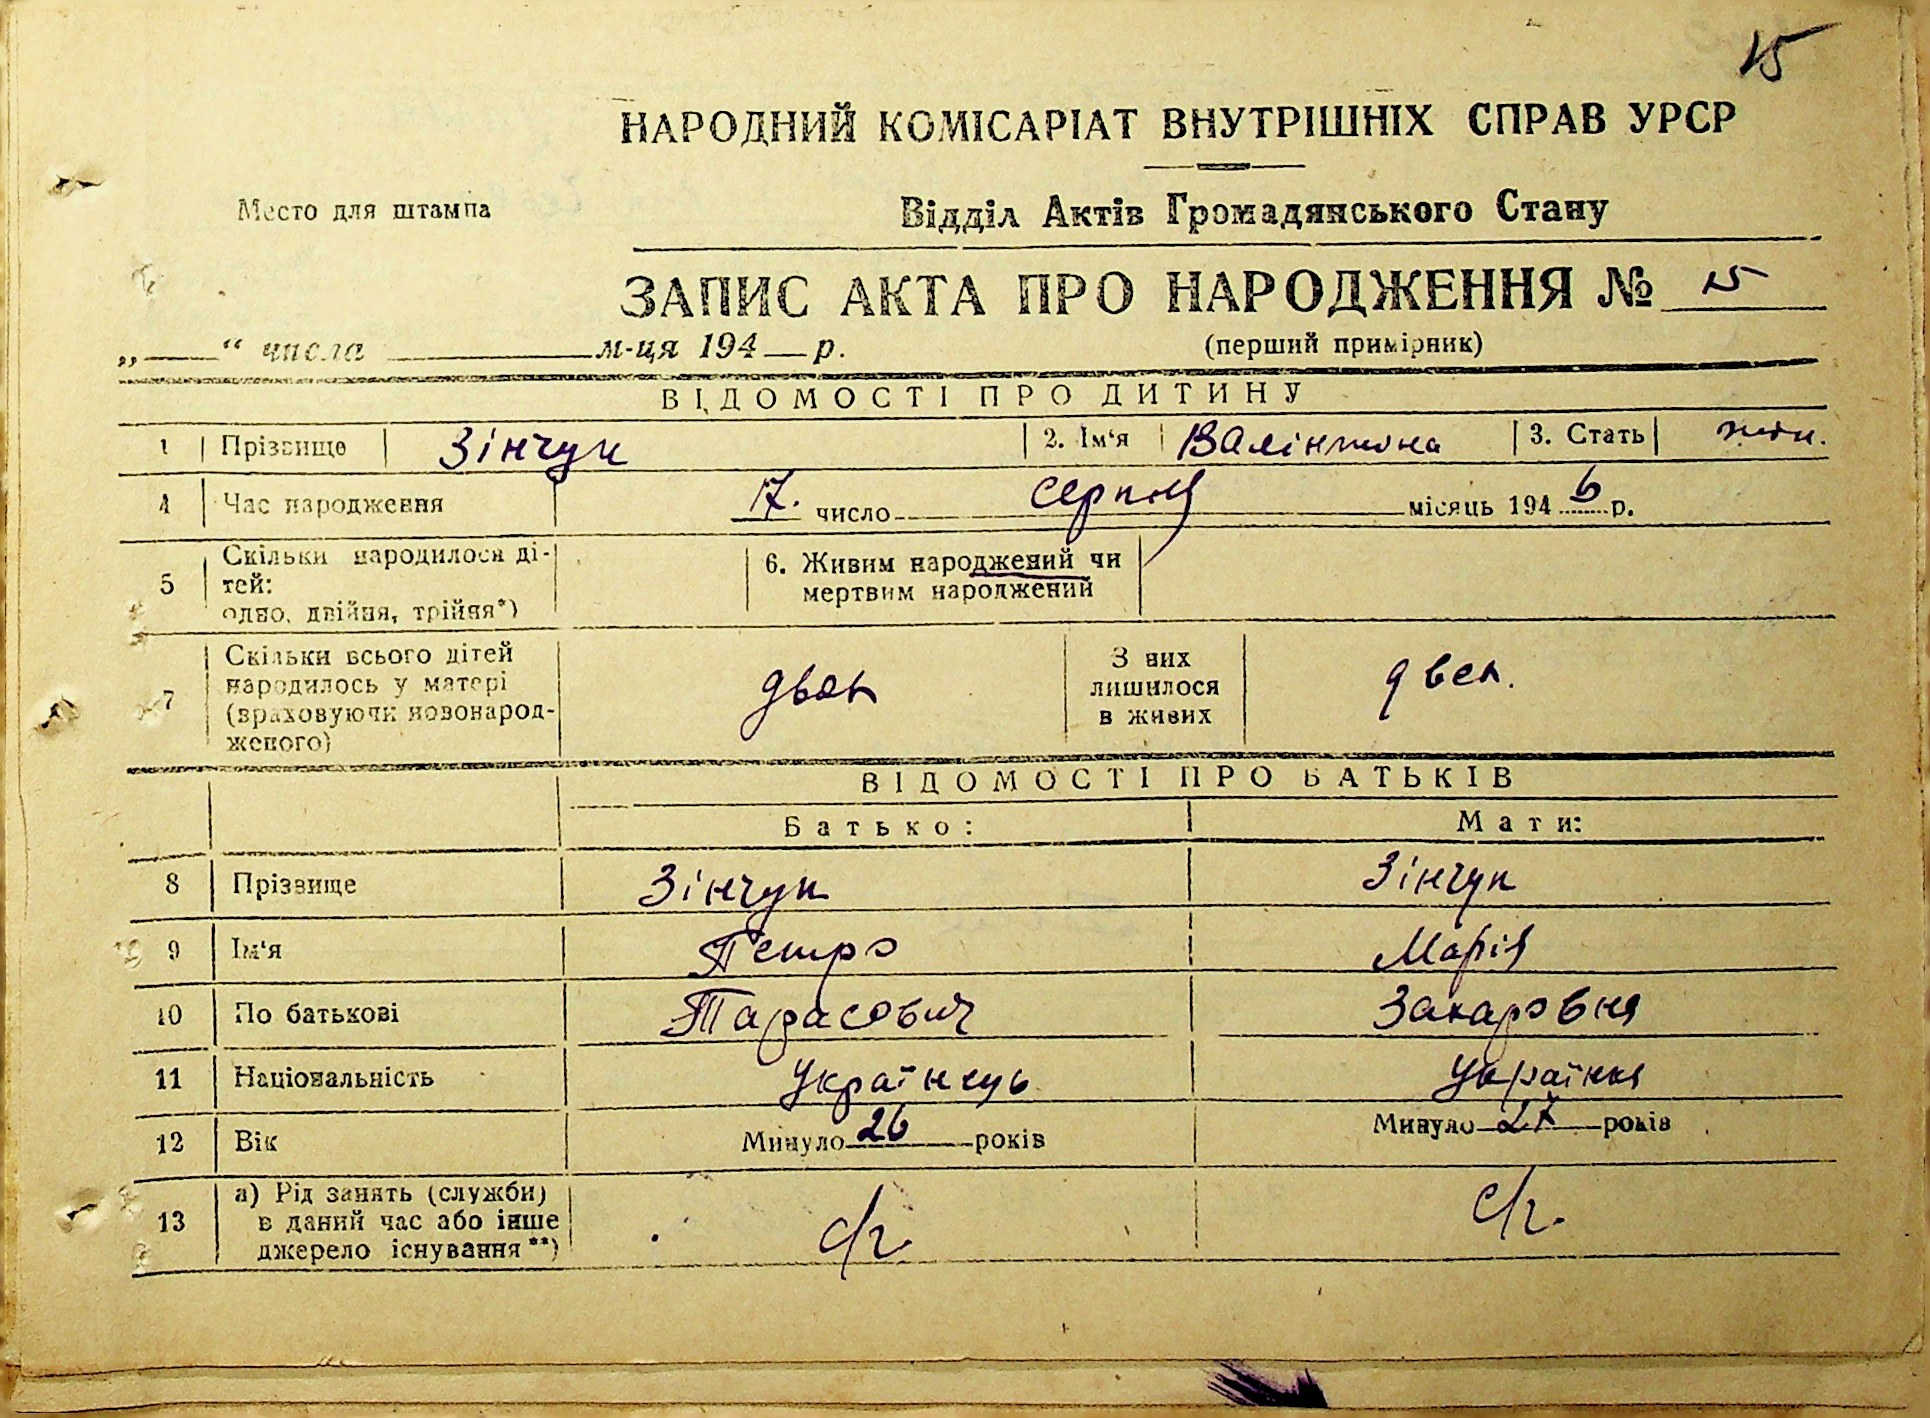 15
НАРОДНИЙ КОМІСАРІАТ ВНУТРІШНІХ СПРАВ УРСР
Место для штампа
Відділ Актів Громадянського Стану
ЗАПИС АКТА ПРО НАРОДЖЕННЯ № 15
„ “ числа м-ця 194 р.
(перший примірник)
ВІДОМОСТІ ПРО ДИТИНУ
1 Прізвище Зінчук 2. Ім‘я Валінтина 3. Стать жін.
4 Час народження 17. число серпня місяць 1946 р.
5 Скільки народилося ді-
тей:
одно, двійня, трійня*)
6. Живим народжений чи
мертвим народжений
7 Скільки всього дітей
народилось у матері
(враховуючи новонарод-
женого)
двох
З них
лишилося
в живих
двох.
ВІДОМОСТІ ПРО БАТЬКІВ
Батько: Мати:
8 Прізвище Зінчук Зінчук
9 Ім‘я Петро Марія
10 По батькові Тарасович Захаровня
11 Національність Українець Українка
12 Вік Минуло 26 років Минуло 27 років
13 а) Рід занять (служби)
в даний час або інше
джерело існування**)
с/г. с/г.